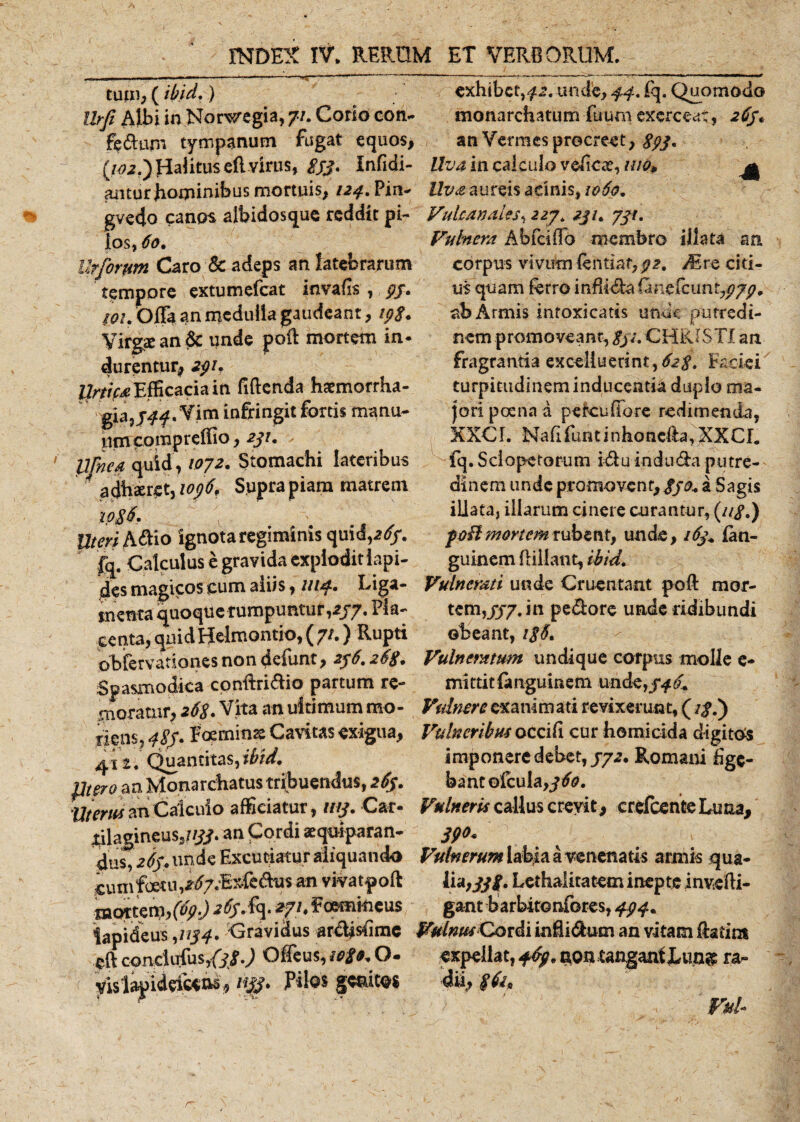 INDEX IV. RERUM ET VERBORUM.
tum, (ibid.)
Urſi Albi in Norwegia, 71. Corio con-
fectum tympanum fugat equos,
(102.) Halitus eſt virus, 853. Inſidi-
antur hominibus mortuis, 124. Pin-
gvedo canos albidosque reddit pi-
los, 60.
Urſorum Caro & adeps an latebrarum
tempore extumeſcat invaſis, 95.
101. Oſſa an medulla gaudeant, 198.
Virgæ an & unde poſt mortem in-
durentur, 291.
Urticæ Efficacia in ſiſtenda hæmorrha-
gia, 544. Vim infringit fortis manu-
um compreſſio, 231.
Uſnea quid, 1072. Stomachi lateribus
adhæret, 1096. Supra piam matrem
1086.
Uteri Actio ignota regiminis quid, 265.
ſq. Calculus è gravida explodit lapi-
des magicos cum aliis, 1114. Liga-
menta quoque rumpuntur, 257. Pla-
centa, quid Helmontio, (71.) Rupti
obſervationes non deſunt, 256. 268.
Spasmodica conſtrictio partum re-
moratur, 268. Vita an ultimum mo-
riens, 485. Fœminæ Cavitas exigua,
412. Quantitas, ibid.
Utero an Monarchatus tribuendus, 265.
Uterus an Calculo afficiatur, 1113. Car-
tilagineus, 1133. an Cordi æquiparan-
dus, 265. unde Excutiatur aliquando
cum fœtu, 267. Exſectus an vivat poſt
mortem, (69.) 265. ſq. 271. Fœmineus
lapideus, 1134. Gravidus arctisſime
eſt concluſus, (38.) Oſſeus, 1080. O-
vis lapideſcens, 1133. Pilos genitos
exhibet, 42. unde, 44. ſq. Quomodo
monarchatum ſuum exerceat, 265.
an Vermes procreet, 893.
Uva in calculo veſicæ, 1110.
Uvæ aureis acinis, 1060.
Vulcanales, 227. 231. 731.
Vulnera Abſciſſo membro illata an
corpus vivum ſentiat, 92. Ære citi-
us quam ferro inflicta ſaneſcunt, 979.
ab Armis intoxicatis unde putredi-
nem promoveant, 851. CHRISTI an
fragrantia excelluerint, 628. Faciei
turpitudinem inducentia duplo ma-
jori pœna à percuſſore redimenda,
XXCI. Naſi ſunt inhoneſta, XXCI.
ſq. Sclopetorum ictu inducta putre-
dinem unde promovent, 850. à Sagis
illata, illarum cinere curantur, (118.)
poſt mortem rubent, unde, 163. ſan-
guinem ſtillant, ibid.
Vulnerati unde Cruentant poſt mor-
tem, 557. in pectore unde ridibundi
obeant, 186.
Vulneratum undique corpus molle e-
mittit ſanguinem unde, 546.
Vulnere exanimati revixerunt, (18.)
Vulneribus occiſi cur homicida digitos
imponere debet, 572. Romani fige-
bant oſcula, 360.
Vulneris callus crevit, creſcente Luna,
390.
Vulnerum labia à venenatis armis qua-
lia, 338. Lethalitatem inepte inveſti-
gant barbitonſores, 494.
Vulnus Cordi inflictum an vitam ſtatim
expellat, 469. non tangant Lunæ ra-
dii, 861.
Vul-